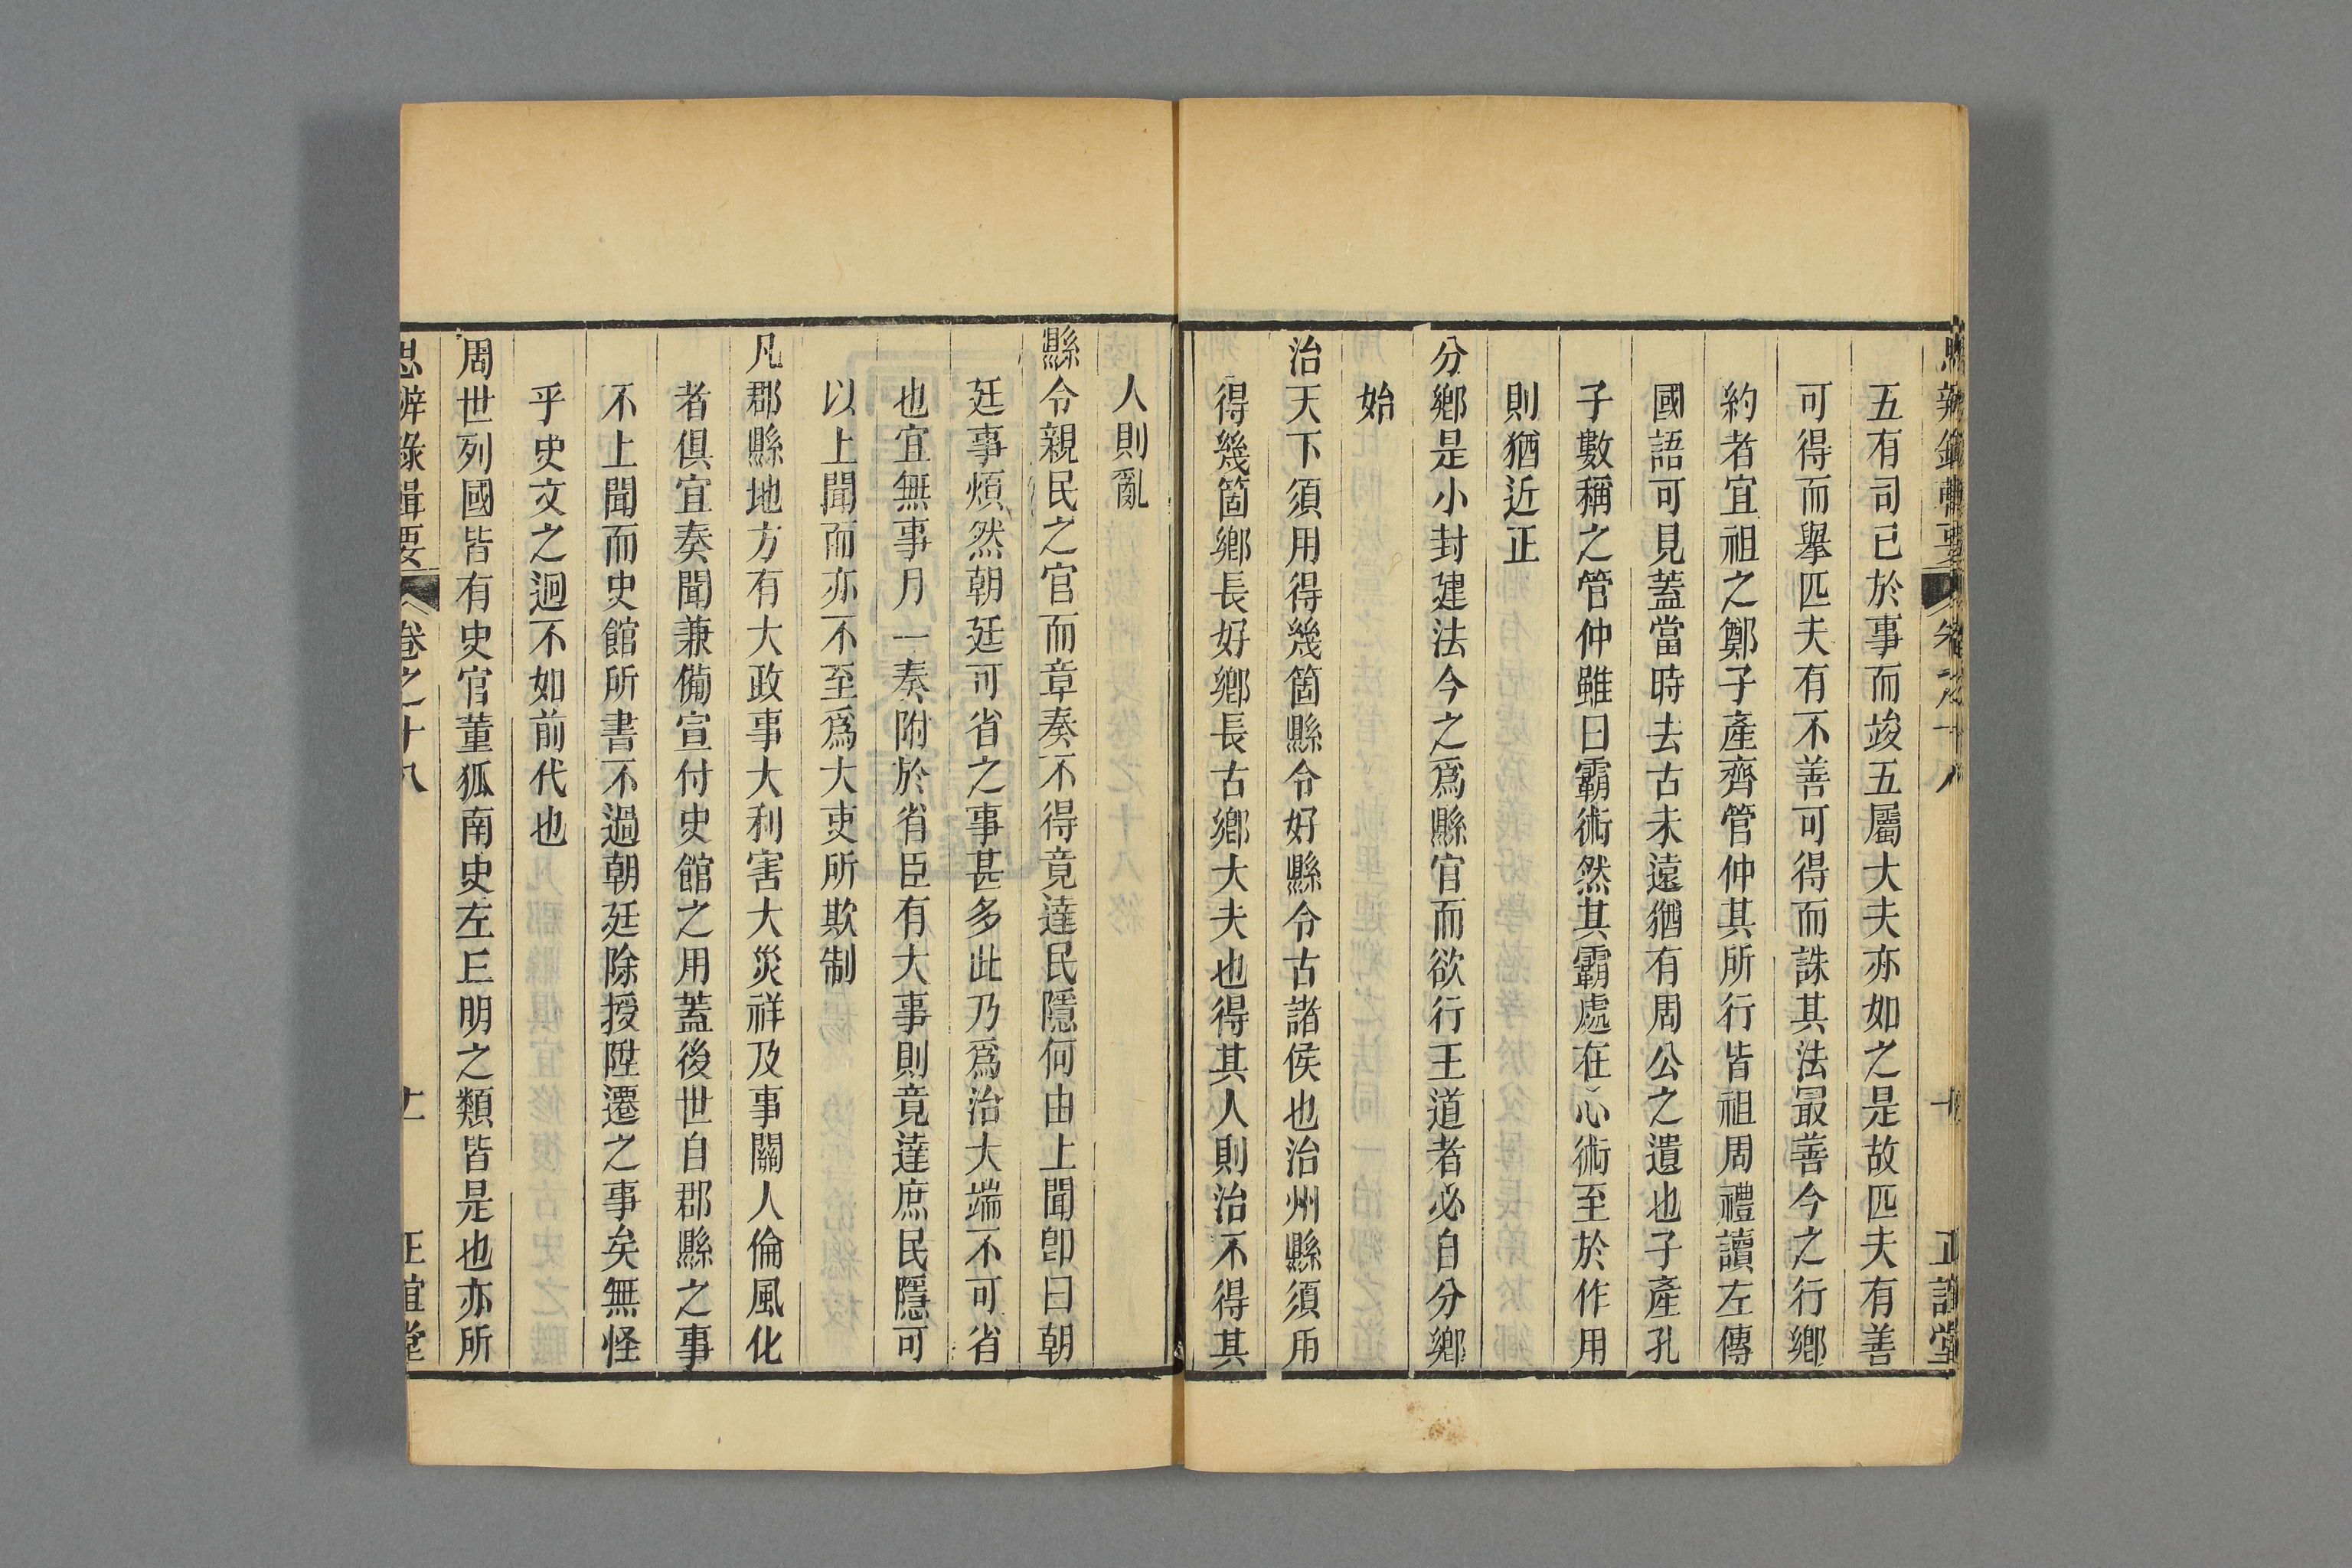 思辨錄輯要 卷之十八 十 正誼堂
五有司已於事而竣五屬大夫亦如之是故匹夫有善
可得而舉匹夫有不善可得而誅其法最善今之行鄉
約者宜祖之鄭子產齊管仲其所行皆祖周禮讀左傳
國語可見蓋當時去古未遠猶有周公之遺也子產孔
子數稱之管仲雖曰霸術然其霸處在心術至於作用
則猶近正
分鄉是小封建法今之爲縣官而欲行王道者必自分鄉
始
治天下須用得幾箇縣令好縣令古諸侯也治州縣須用
得幾箇鄉長好鄉長古鄉大夫也得其人則治不得其
人則亂
縣令親民之官而章奏不得竟達民隱何由上聞卽曰朝
廷事煩然朝廷可省之事甚多此乃爲治大端不可省
也宜無事月一奏附於省臣有大事則竟達庶民隱可
以上聞而亦不至爲大吏所欺制
凡郡縣地方有大政事大利害大災祥及事關人倫風化
者俱宜奏聞兼備宣付史館之用蓋後世自郡縣之事
不上聞而史館所書不過朝廷除授陞遷之事矣無怪
乎史文之迥不如前代也
周世列國皆有史官董狐南史左丘明之類皆是也亦所
思辨錄輯要 卷之十八 十一 正誼堂